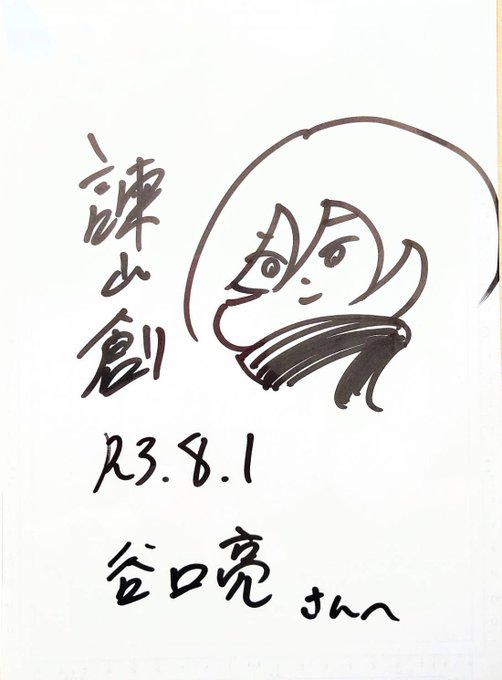 諫山創
R3.8.1
谷口亮さんへ